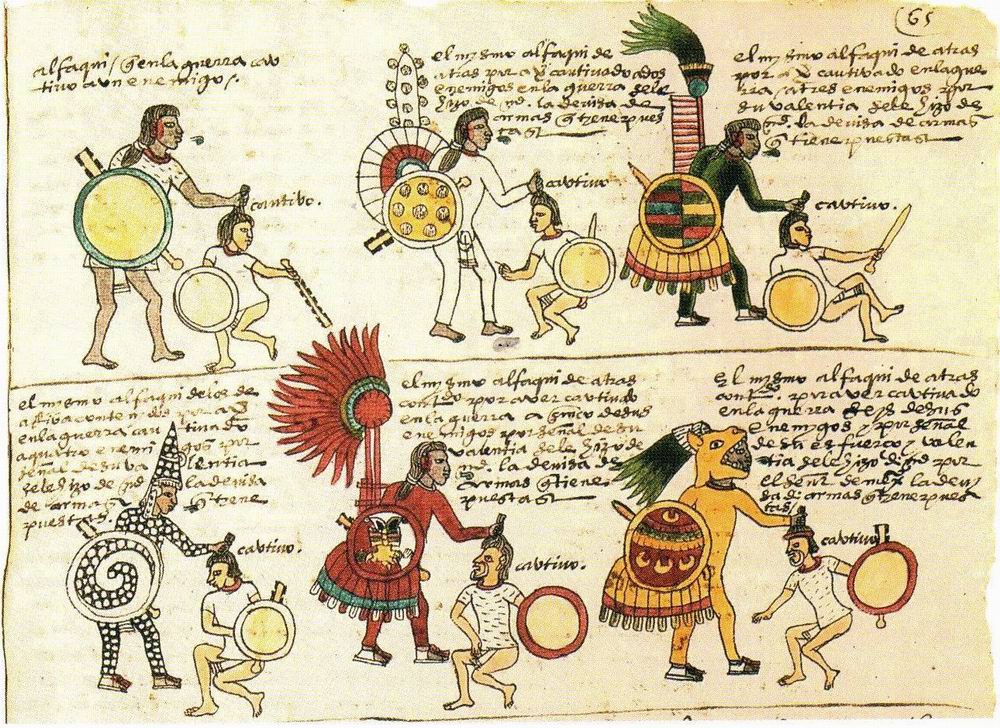 65
alfaqui / q̃ en la guerra cau
tivo a un enemigo /.
cautivo.
el mysmo alfaqui de
atras por a ver̃ cautivado a dos
enemigos en la guerra se le
hizo de md. la devisa de
armas q̃ tiene pues
tas
cautivo
el mysmo alfaqui de atras
por a ver̃ cautivado en la gue
rra / a tres enemigos por
su valentia se le hizo de
md. la devisa de armas
q̃ tiene puestas
cautivo.
el mismo alfaqui de los de
en la guerra cautivado
a quatro enemigos por
señal de su valentia
se le hizo de md la devisa
de armas q̃ tiene
puestas.
cautivo.
el mysmo alfaqui de atras
por aver cautivado
en la guerra a cinco de sus
enemigos por señal de su
valentia se le hizo de
md. la devisa de
armas q̃ tiene
puestas
cautivo.
El mysmo alfaqui de atras
por aver cautivado
en la guerra seys de sus
enemigos / y por señal
de su esfuerço / y valen
tia se le hizo de md por
el señor de mexco la devi
sa de armas q̃ tiene pues
tas /
cautivo